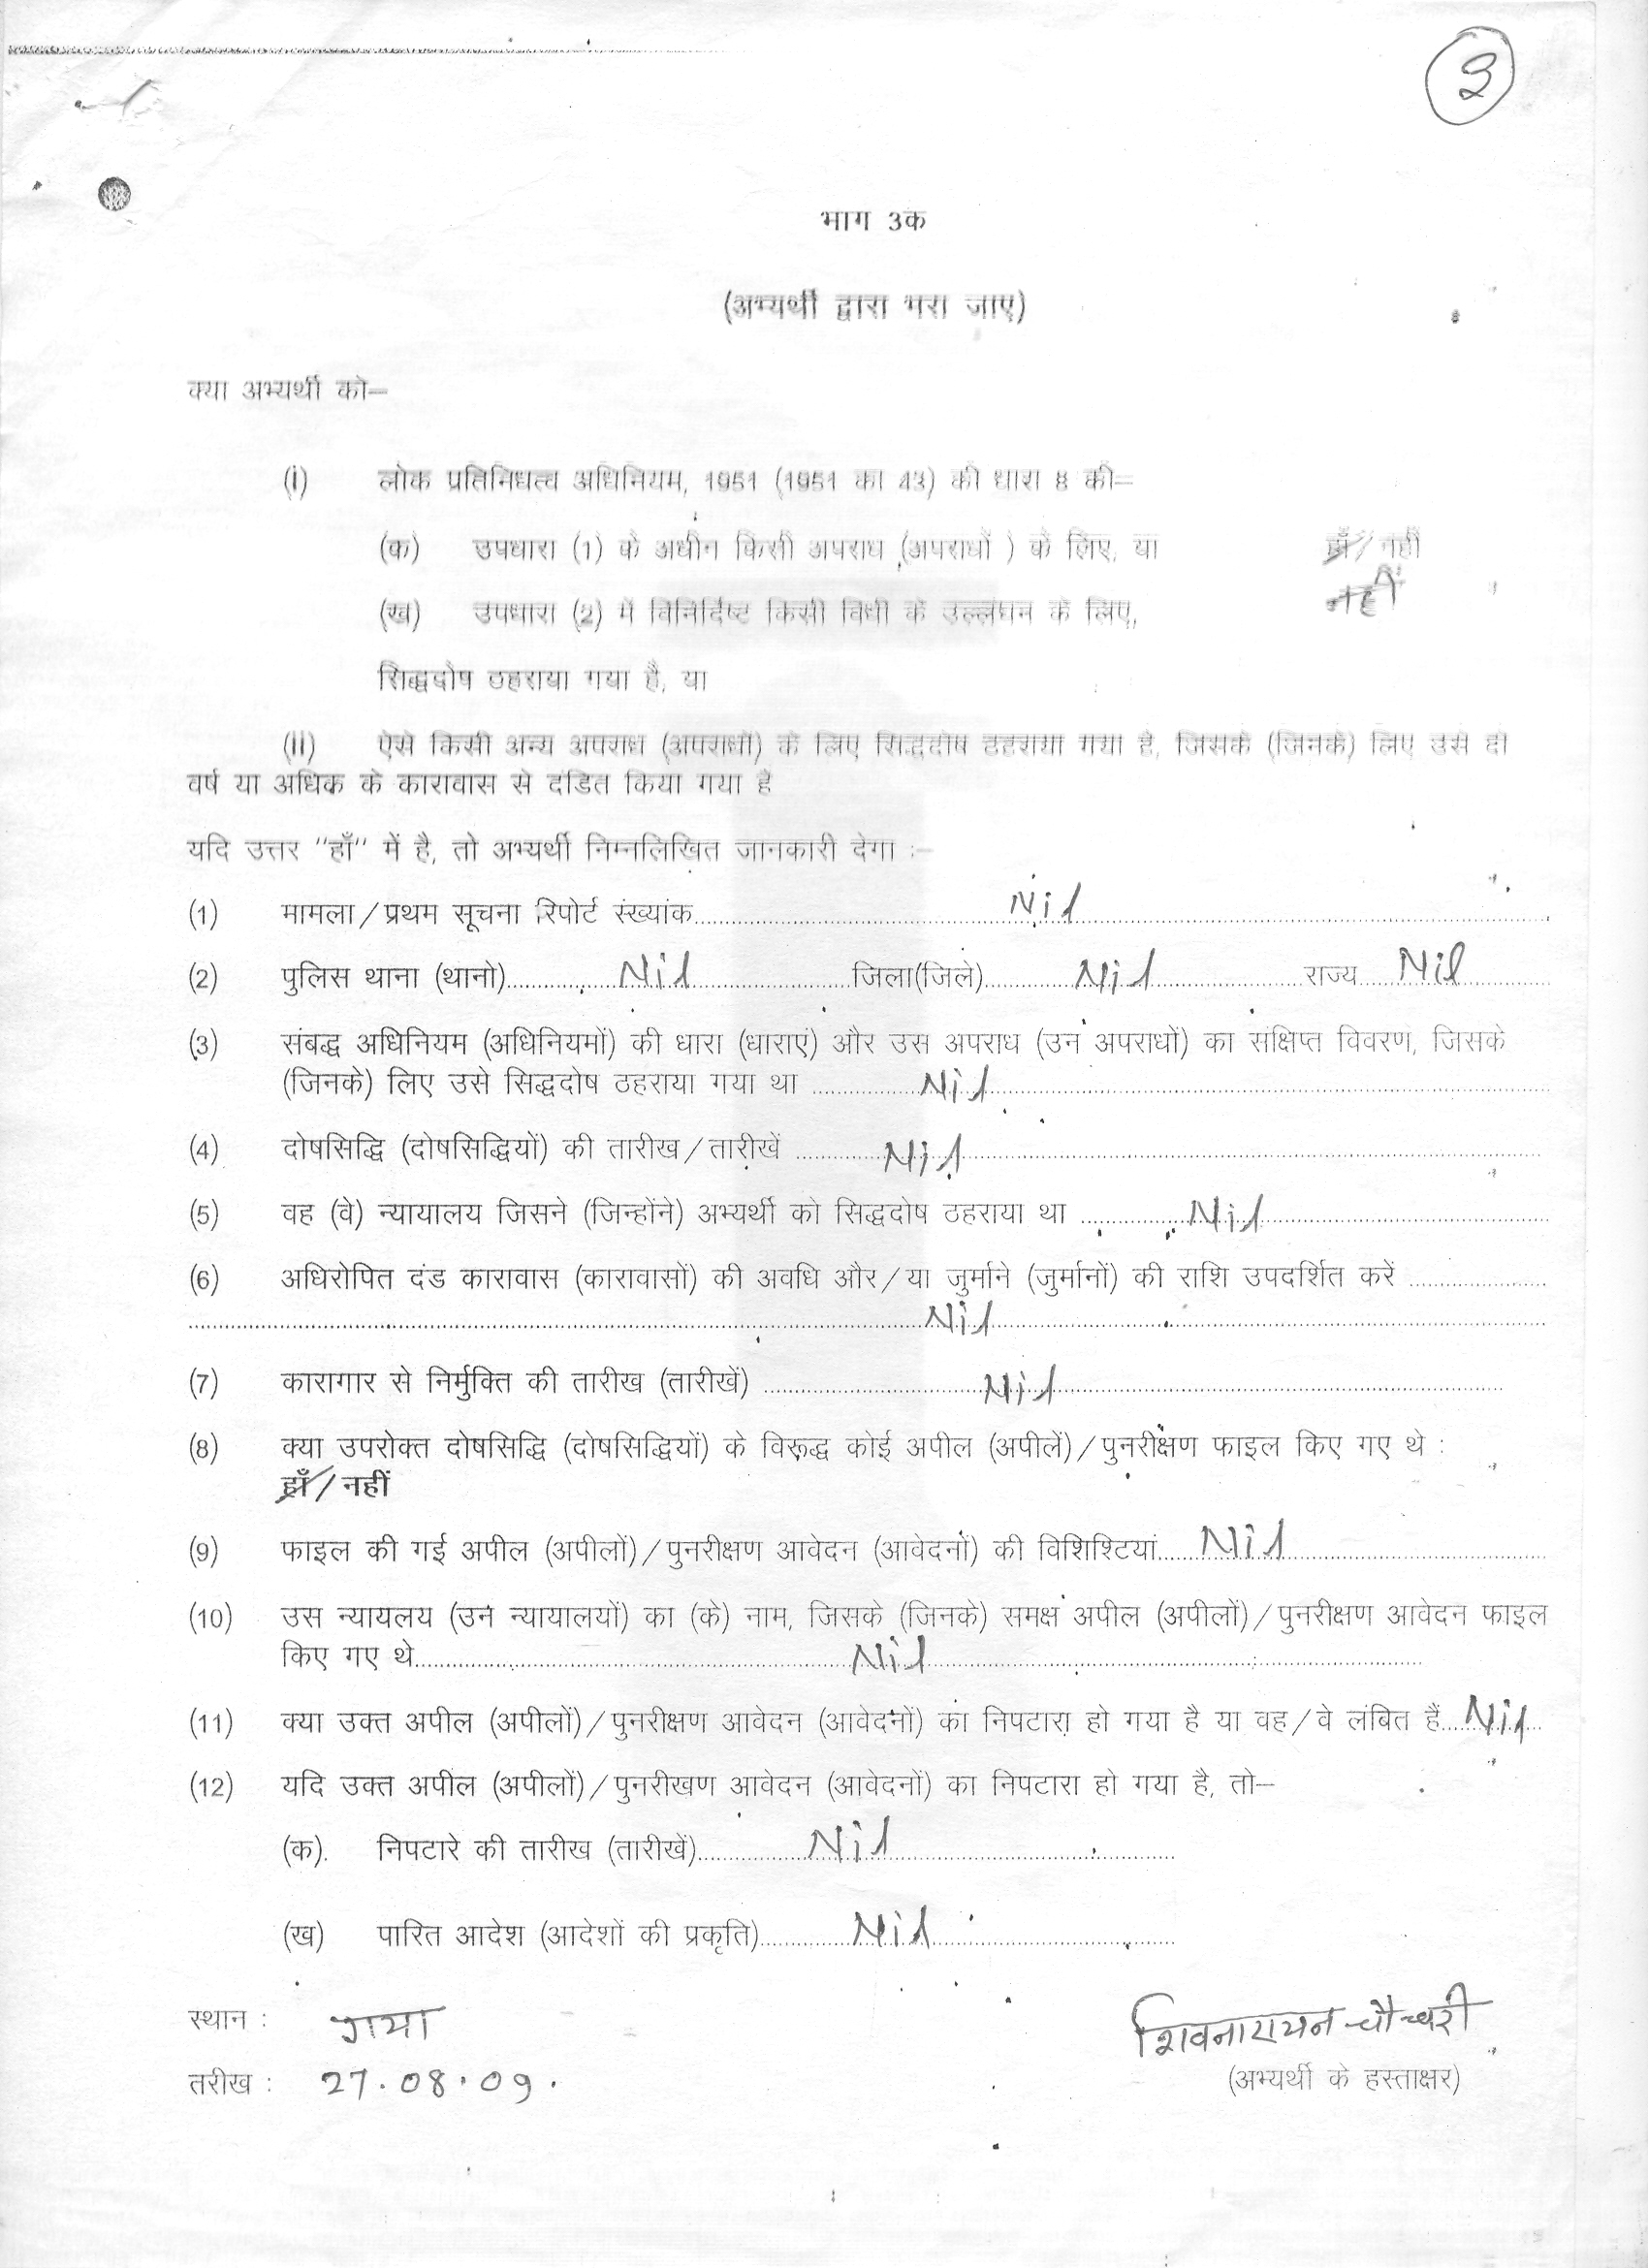 ३
भाग 3क
(अभ्यर्थी द्वारा भरा जाए)
क्या अभ्यर्थी को–
(i) लोक प्रतिनिधत्व अधिनियम, 1951 (1951 का 43) की धारा 8 की–
(क) उपधारा (1) के अधीन किसी अपराध (अपराधों ) के लिए, या हाँ/नहीं
नहीं
(ख) उपधारा (2) में विनिर्दिष्ट किसी विधी के उल्लंघन के लिए,
सिद्धदोष ठहराया गया है, या
(ii) ऐसे किसी अन्य अपराध (अपराधों) के लिए सिद्धदोष ठहराया गया है, जिसके (जिनके) लिए उसे दो
वर्ष या अधिक के कारावास से दंडित किया गया है
यदि उत्तर "हाँ" में है, तो अभ्यर्थी निम्नलिखित जानकारी देगा :–
(1) मामला/प्रथम सूचना रिपोर्ट संख्यांक Nil
(2) पुलिस थाना (थानो) Nil जिला(जिले) Nil राज्य Nil
(3) संबद्ध अधिनियम (अधिनियमों) की धारा (धाराएं) और उस अपराध (उन अपराधों) का संक्षिप्त विवरण, जिसके
(जिनके) लिए उसे सिद्धदोष ठहराया गया था Nil
(4) दोषसिद्धि (दोषसिद्धियों) की तारीख/तारीखें Nil
(5) वह (वे) न्यायालय जिसने (जिन्होंने) अभ्यर्थी को सिद्धदोष ठहराया था Nil
(6) अधिरोपित दंड कारावास (कारावासों) की अवधि और/या जुर्माने (जुर्मानों) की राशि उपदर्शित करें
Nil
(7) कारागार से निर्मुक्ति की तारीख (तारीखें) Nil
(8) क्या उपरोक्त दोषसिद्धि (दोषसिद्धियों) के विरूद्ध कोई अपील (अपीलें)/पुनरीक्षण फाइल किए गए थे :
हाँ/नहीं
(9) फाइल की गई अपील (अपीलों)/पुनरीक्षण आवेदन (आवेदनों) की विशिश्टियां Nil
(10) उस न्यायलय (उन न्यायालयों) का (के) नाम, जिसके (जिनके) समक्ष अपील (अपीलों)/पुनरीक्षण आवेदन फाइल
किए गए थे Nil
(11) क्या उक्त अपील (अपीलों)/पुनरीक्षण आवेदन (आवेदनों) का निपटारा हो गया है या वह/वे लंबित हैं Nil
(12) यदि उक्त अपील (अपीलों)/पुनरीखण आवेदन (आवेदनों) का निपटारा हो गया है, तो–
(क). निपटारे की तारीख (तारीखें) Nil
(ख) पारित आदेश (आदेशों की प्रकृति) Nil
स्थान : गया
शिवनारायन चौधरी
तरीख : 27.08.09.
(अभ्यर्थी के हस्ताक्षर)